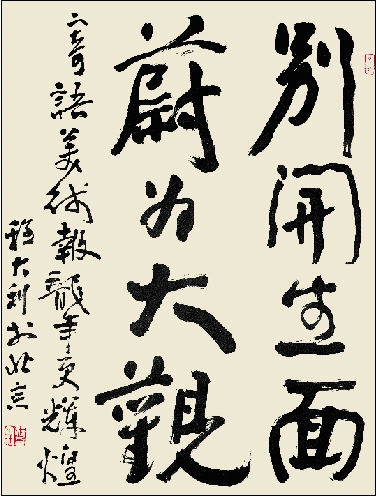 別開生面
蔚为大觀
寄語美術報龍年更輝煌
程大利於北京